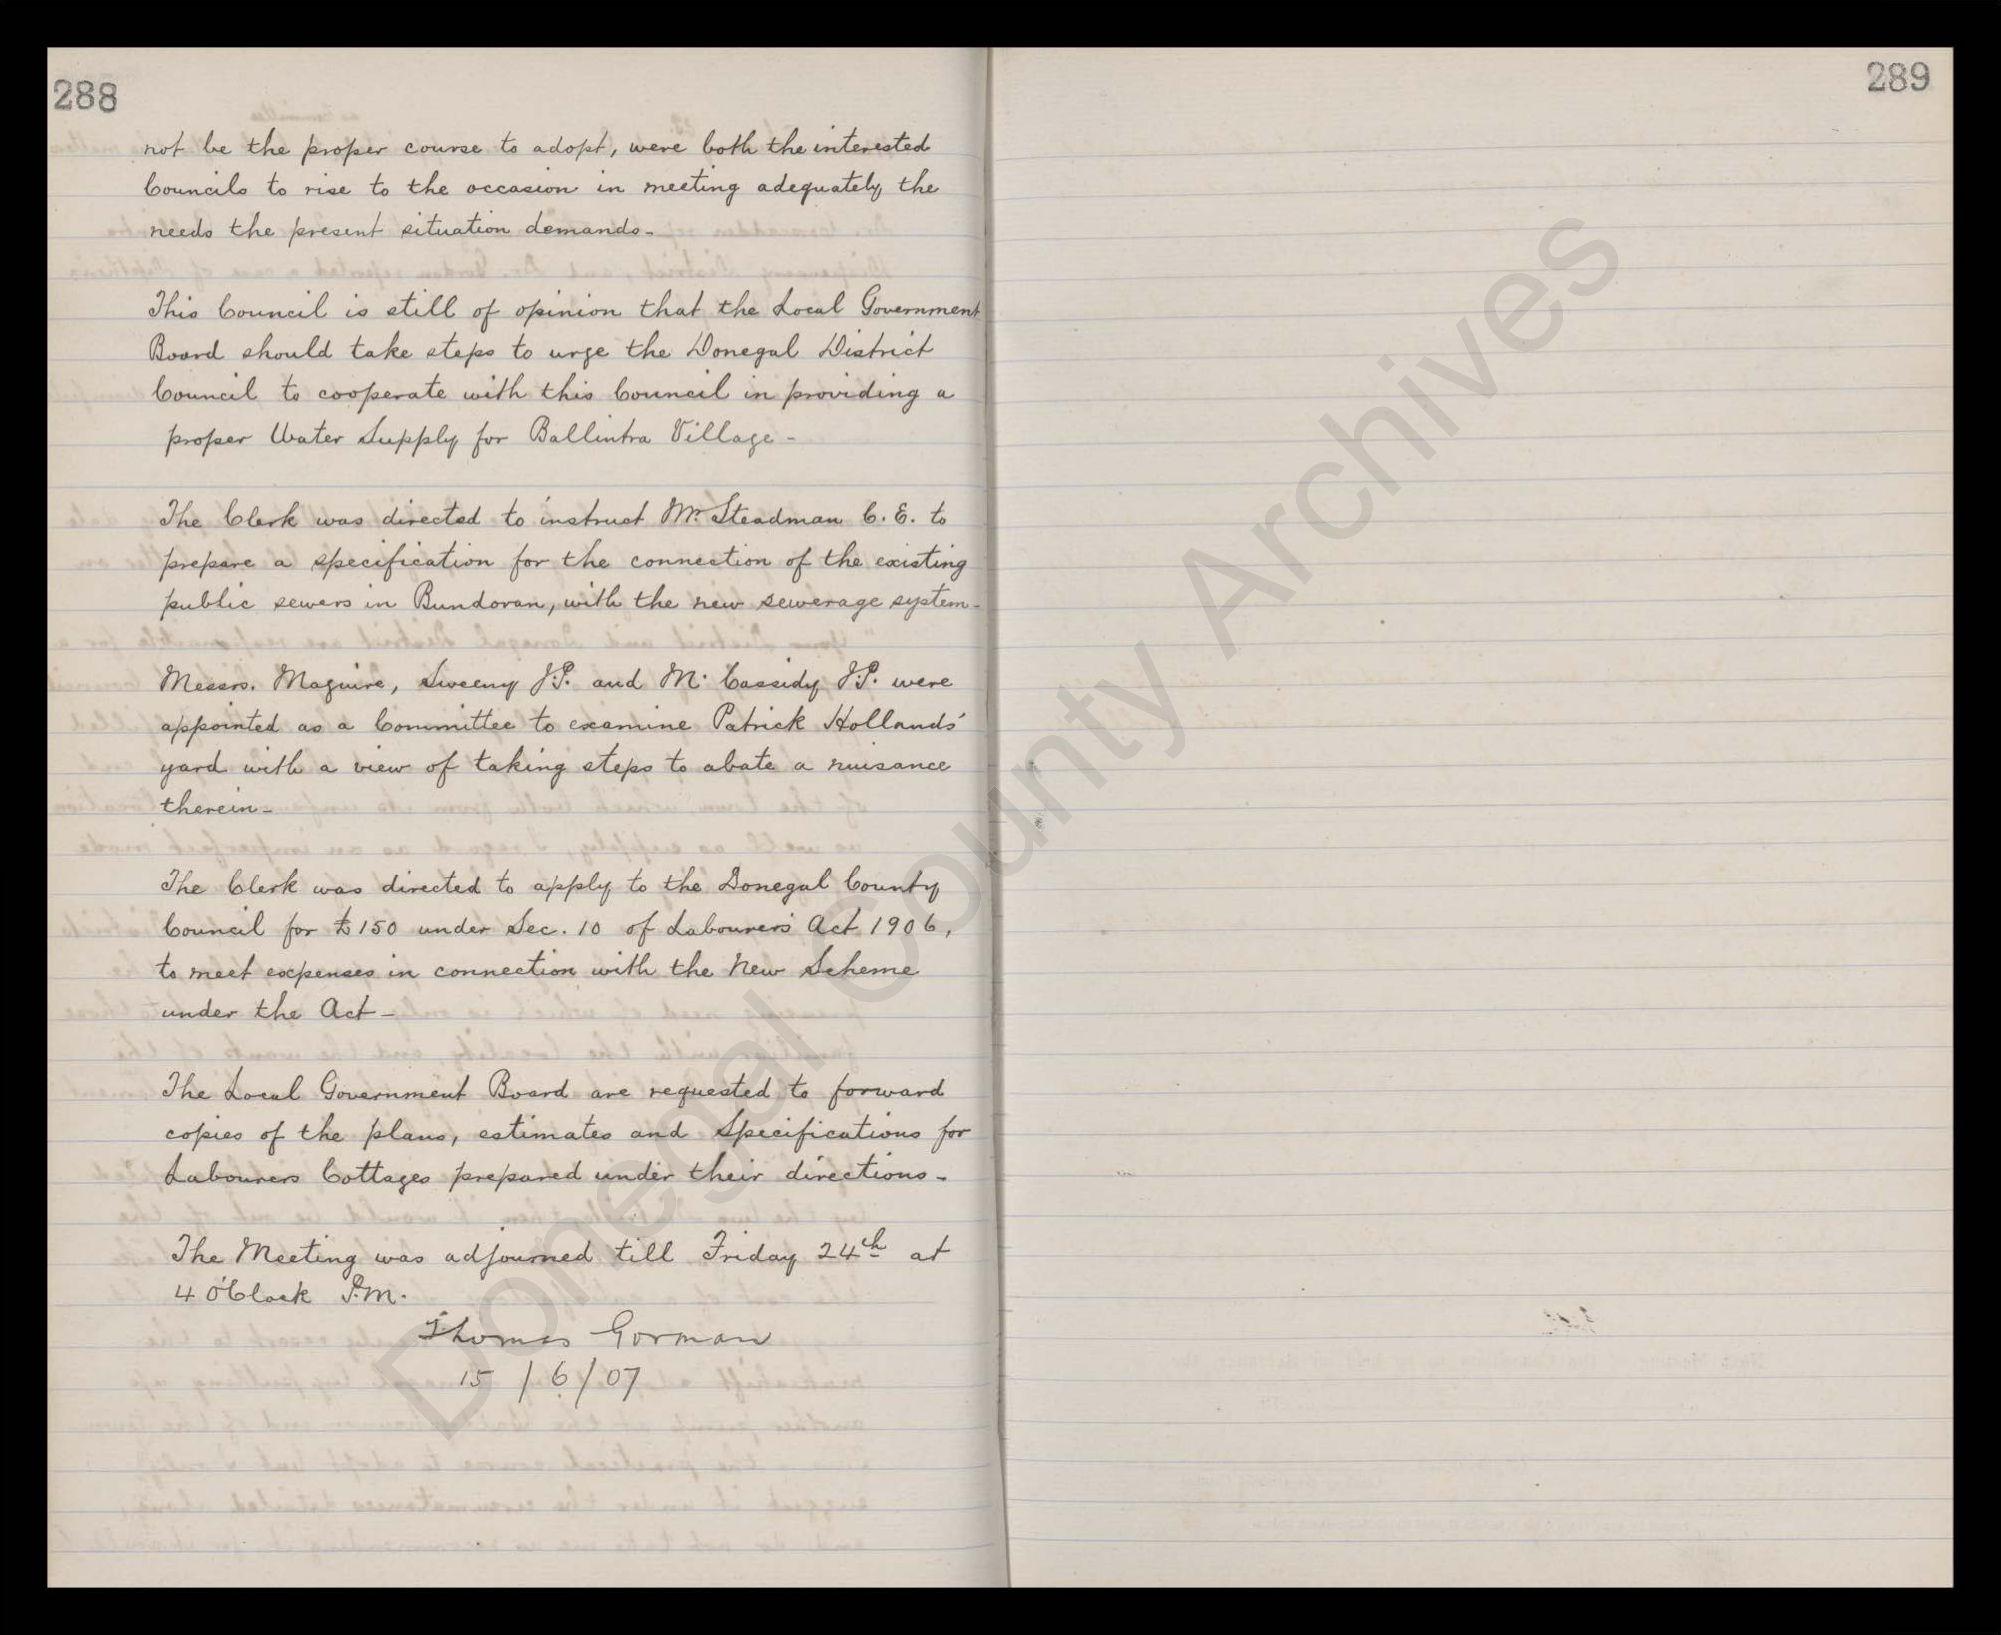 288
not be the proper course to adopt, were both the interested
Councils to rise to the occasion in meeting adequately the
needs the present situation demands-
This Council is still of opinion that the Local Government
Board should take steps to urge the Donegal District
Council to cooperate with this Council in providing a
proper Water Supply for Ballintra Village-
The Clerk was directed to instruct Mr. Steadman C.E. to
prepare a specification for the connection of the existing
public sewers in Bundoran, with the new sewerage system-
Messrs. Maguire, Sweeny J.P. and M. Cassidy J.P. were
appointed as a Committee to examine Patrick Hollands'
yard with a view of taking steps to abate a nuisance
therein-
The Clerk was directed to apply to the Donegal County
Council for £150 under Sec. 10 of Labourers' Act 1906,
to meet expenses in connection with the New Scheme
under the Act-
The Local Government Board are requested to forward
copies of the plans, estimates and Specifications for
Labourers Cottages prepared under their directions-
The Meeting was adjourned till Friday 24th at
4 O'Clock P.M.
Thomas Gorman
15/6/07
289
Donegal County Archives